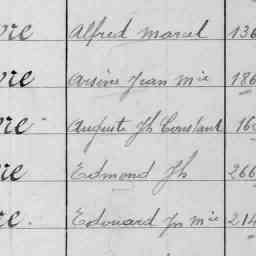 vre Alfred Marcel 136
vre Arsène Jean Mie 186
vre Auguste Jh Constant 16
vre Edmond Jh 266
vre. Edouard Jn Mie 214